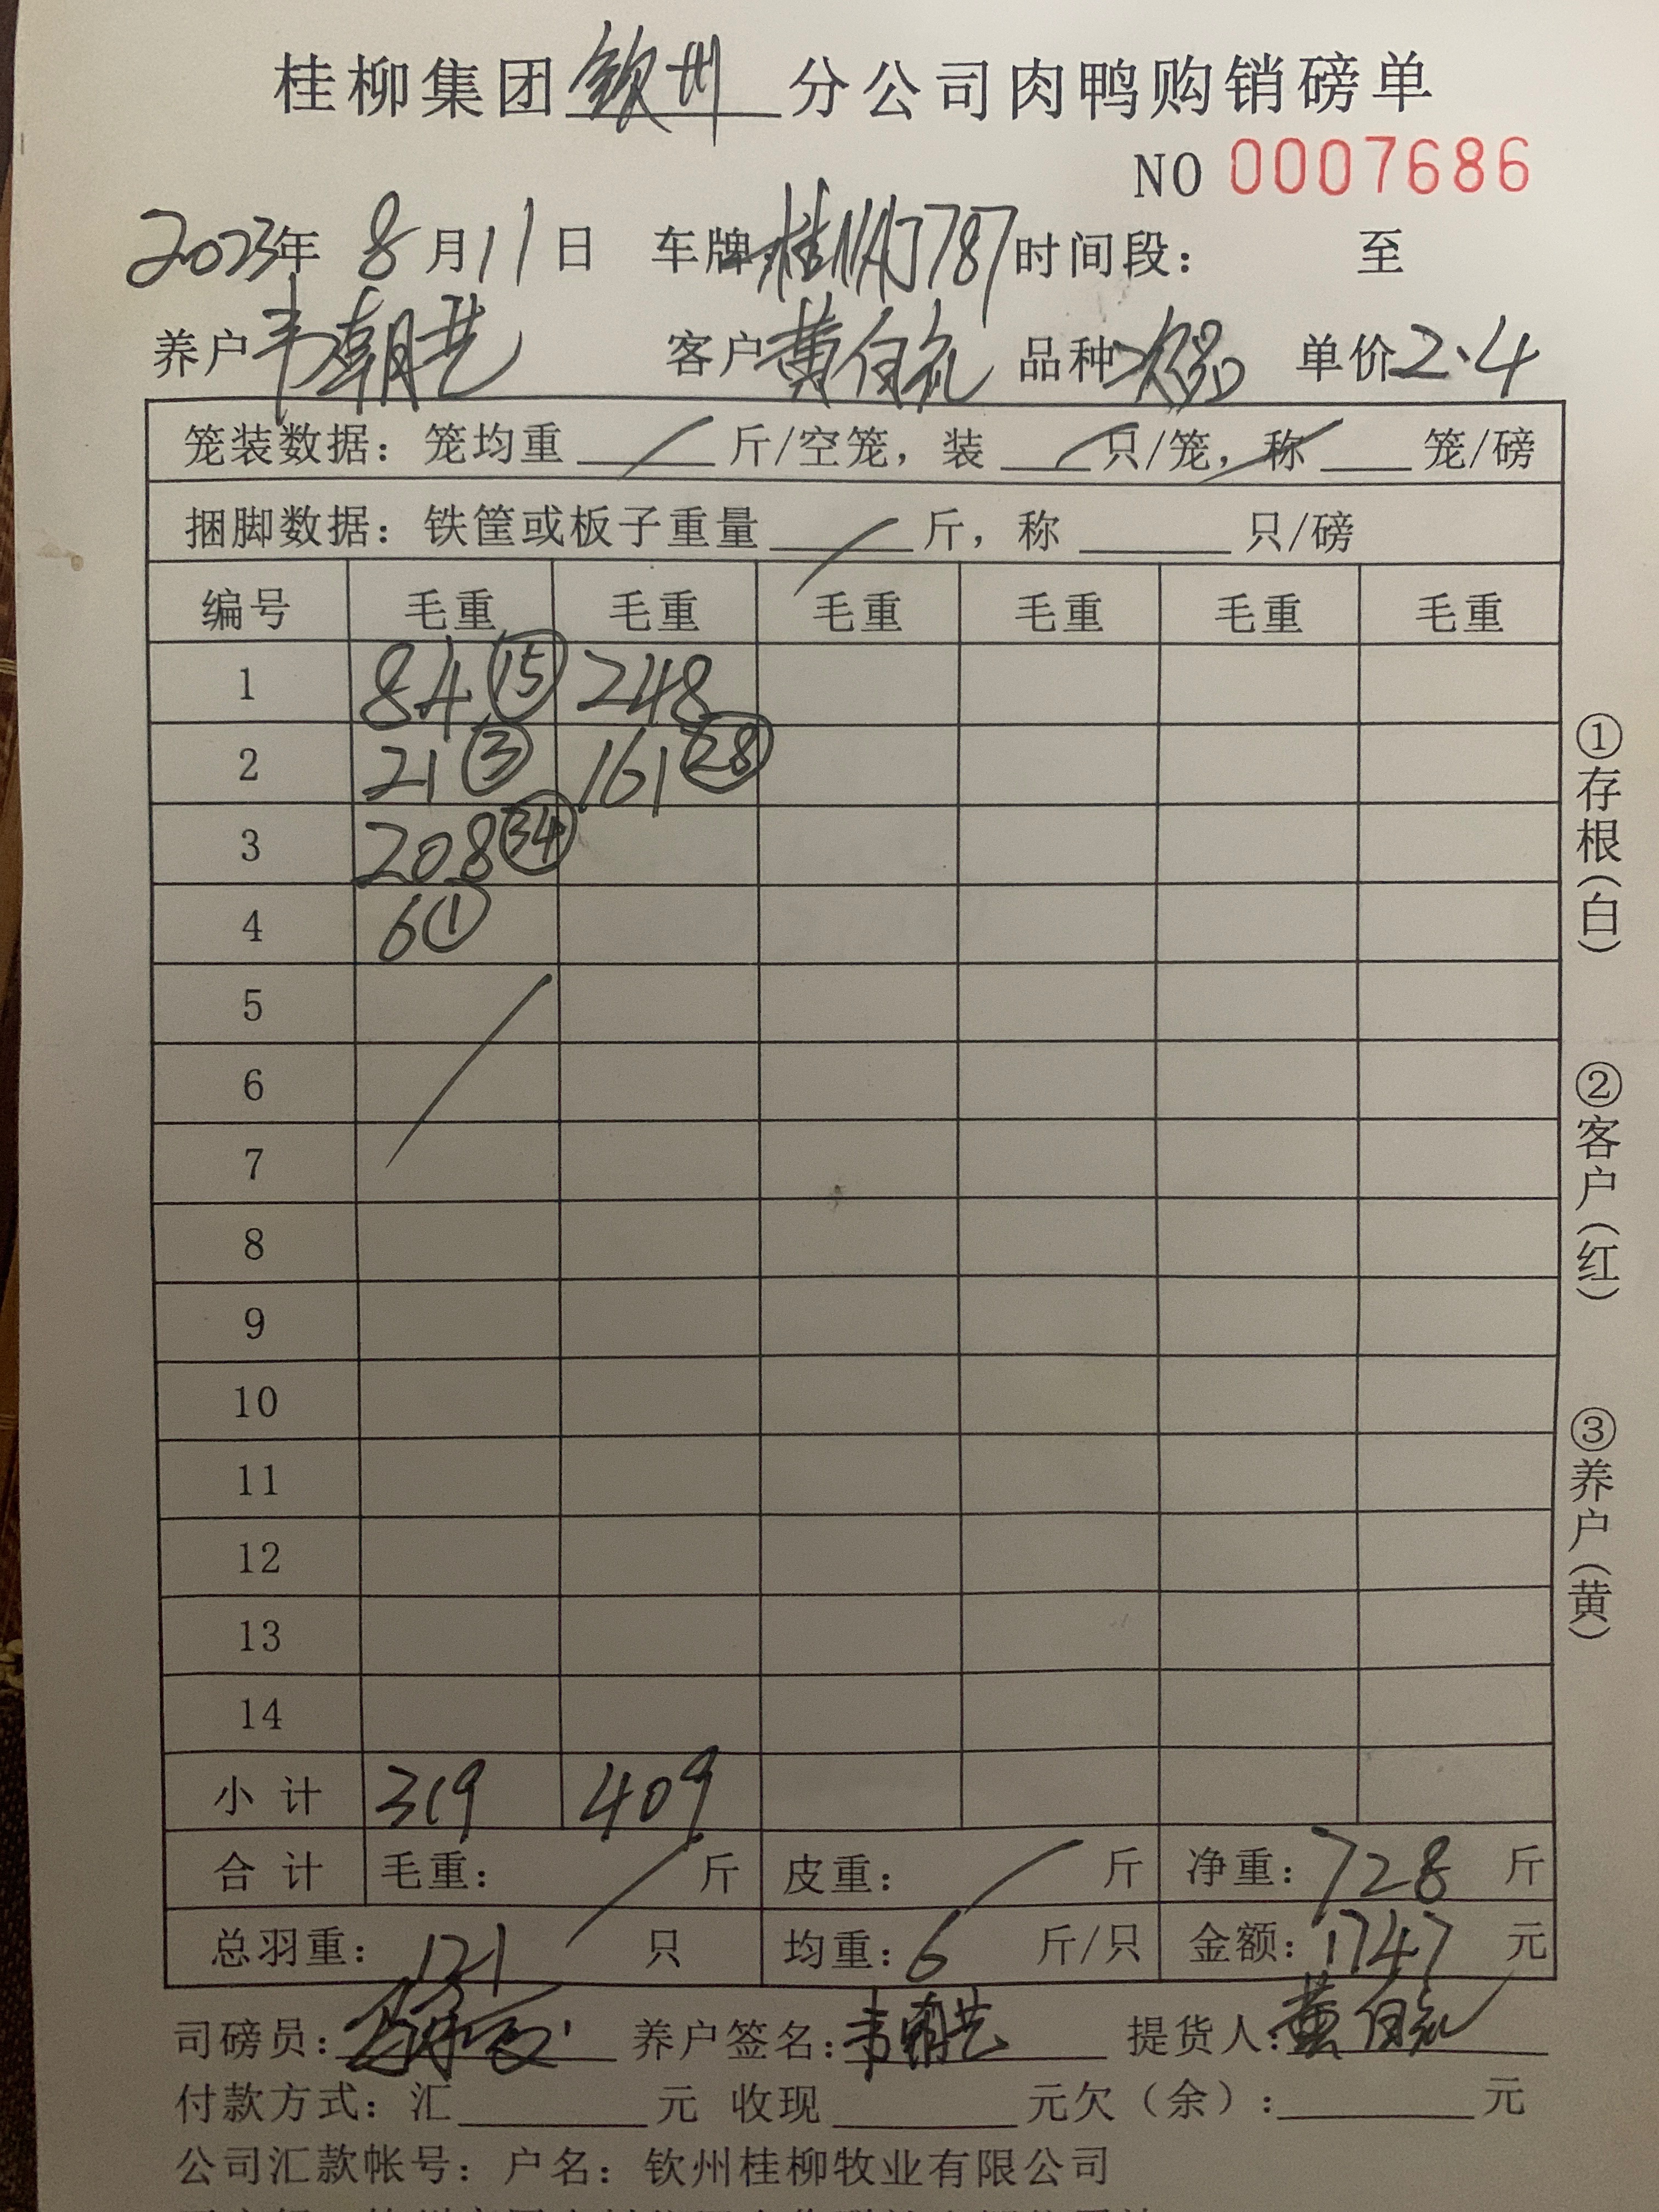 桂柳集团钦州分公司肉鸭购销磅单
NO 0007686
2023年 8月11日 车牌桂NAJ787时间段： 至
养户韦朝艺 客户黄 品种 单价2.4
笼装数据：笼均重 斤/空笼，装 只/笼，称 笼/磅
捆脚数据：铁筐或板子重量 斤，称 只/磅
编号 毛重 毛重 毛重 毛重 毛重 毛重
1 84 ⑮ 248
2 21 ③ 161 ㉘
3 208 ㉞
4 6 ①
5
6
7
8
9
10
11
12
13
14
小计 319 409
合计 毛重： 斤 皮重： 斤 净重：728 斤
总羽重：121 只 均重：6 斤/只 金额：1747 元
司磅员： 养户签名：韦朝艺 提货人：黄
付款方式：汇 元 收现 元欠（余）： 元
公司汇款帐号：户名：钦州桂柳牧业有限公司
①存根（白）
②客户（红）
③养户（黄）